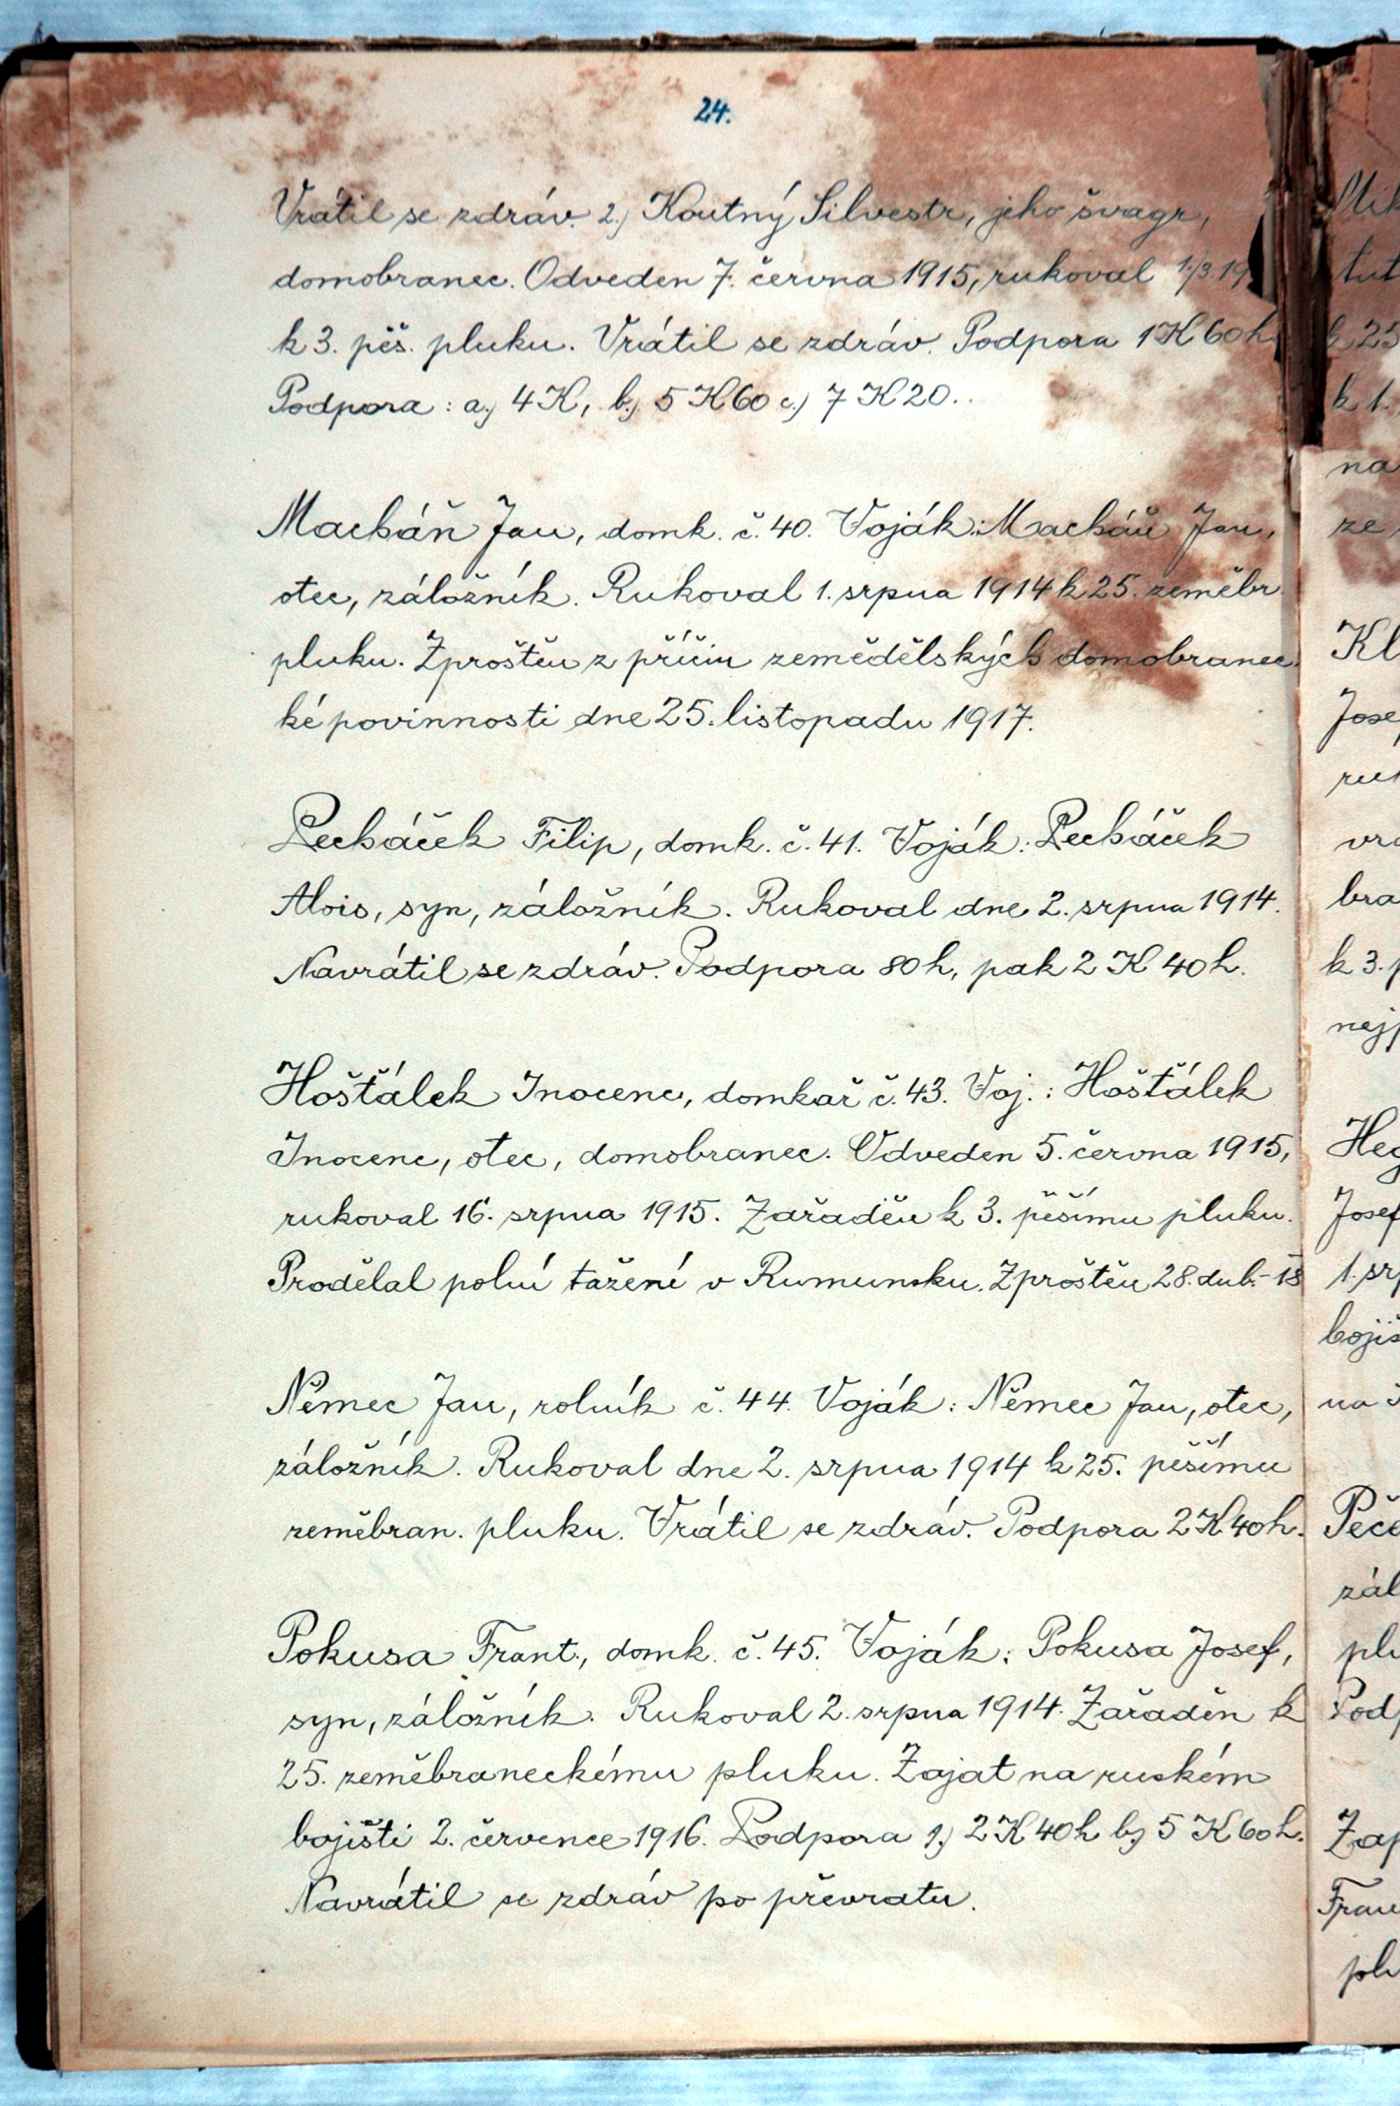 24.
Vrátil se zdráv. 2.) Koutný Silvestr, jeho švagr,
domobranec. Odveden 7. června 1915, rukoval 1./3. 19
k 3. pěš. pluku. Vrátil se zdráv. Podpora 1 K 60 h.
Podpora : a.) 4 K, b.) 5 K 60 c.) 7 K 20.
Macháň Jan, domk. č. 40. Voják: Macháň Jan,
otec, záložník. Rukoval 1. srpna 1914 k 25. zeměbr.
pluku. Zproštěn z příčin zemědělských domobranec-
ké povinnosti dne 25. listopadu 1917.
Pecháček Filip, domk. č. 41. Voják: Pecháček
Alois, syn, záložník. Rukoval dne 2. srpna 1914.
Navrátil se zdráv. Podpora 80 h, pak 2 K 40 h.
Hošťálek Inocenc, domkař č. 43. Voj.: Hošťálek
Inocenc, otec, domobranec. Odveden 5. června 1915,
rukoval 16. srpna 1915. Zařaděn k 3. pěšímu pluku.
Prodělal polní tažení v Rumunsku. Zproštěn 28. dub. 18
Němec Jan, rolník č. 44. Voják: Němec Jan, otec,
záložník. Rukoval dne 2. srpna 1914 k 25. pěšímu
zeměbran. pluku. Vrátil se zdráv. Podpora 2 K 40 h.
Pokusa Frant., domk. č. 45. Voják: Pokusa Josef,
syn, záložník. Rukoval 2. srpna 1914. Zařaděn k
25. zeměbraneckému pluku. Zajat na ruském
bojišti 2. července 1916. Podpora 1.) 2 K 40 h b.) 5 K 60 h.
Navrátil se zdráv po převratu.